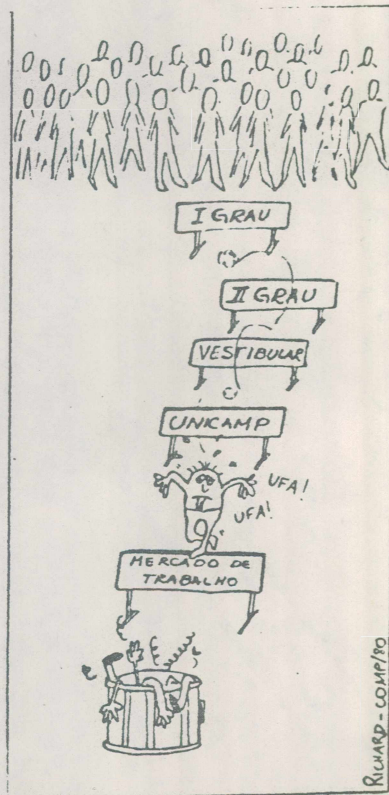 I GRAU
II GRAU
VESTIBULAR
UNICAMP
UFA!
UFA!
MERCADO DE
TRABALHO
RICHARD - COMP/80